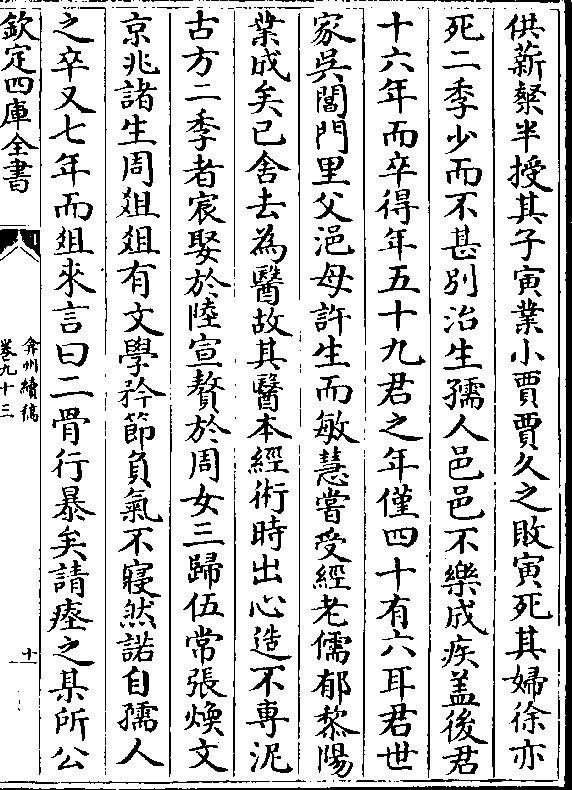 供薪槃半授其子寅業小賈賈久之敗寅死其婦徐亦
死二季少而不甚別治生孺人邑邑不樂成疾盖後君
十六年而卒得年五十九君之年僅四十有六耳君世
家吳閶門里父浥母許生而敏慧嘗受經老儒郁黎陽
業成矣已舍去為醫故其醫本經術時出心造不専泥
古方二季者宸娶於陸宣贅於周女三歸伍常張煥文
京兆諸生周爼爼有文學矜節負氣不寢然諾自孺人
之卒又七年而爼來言曰二骨行暴矣請瘞之某所公
欽定四庫全書
弇州續稿
卷九十三
十